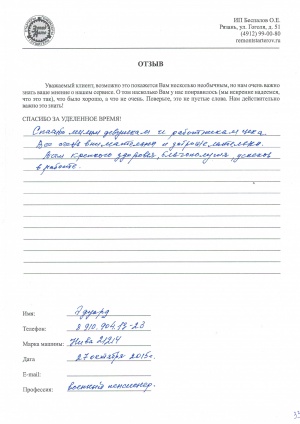 ИП Беспалов О.Е.
Рязань, ул. Гоголя, д. 51
(4912) 99-00-80
remontstarterov.ru
ОТЗЫВ
Уважаемый клиент, возможно это покажется Вам несколько необычным, но нам очень важно
знать ваше мнение о нашем сервисе. О том насколько Вам у нас понравилось (мы искренне надеемся,
что это так), что было хорошо, а что не очень. Поверьте, это не пустые слова. Нам действительно
важно это знать!
СПАСИБО ЗА УДЕЛЕННОЕ ВРЕМЯ!
Спасибо милым девушкам и работникам цеха.
Все очень внимательно и доброжелательно.
Всем крепкого здоровья, благополучия, успехов
в работе.
Имя: Эдуард
Телефон: 8 910. 904. 83-23
Марка машины: Нива 21214
Дата 27 октября 2015г.
E-mail:
Профессия: военный пенсионер.